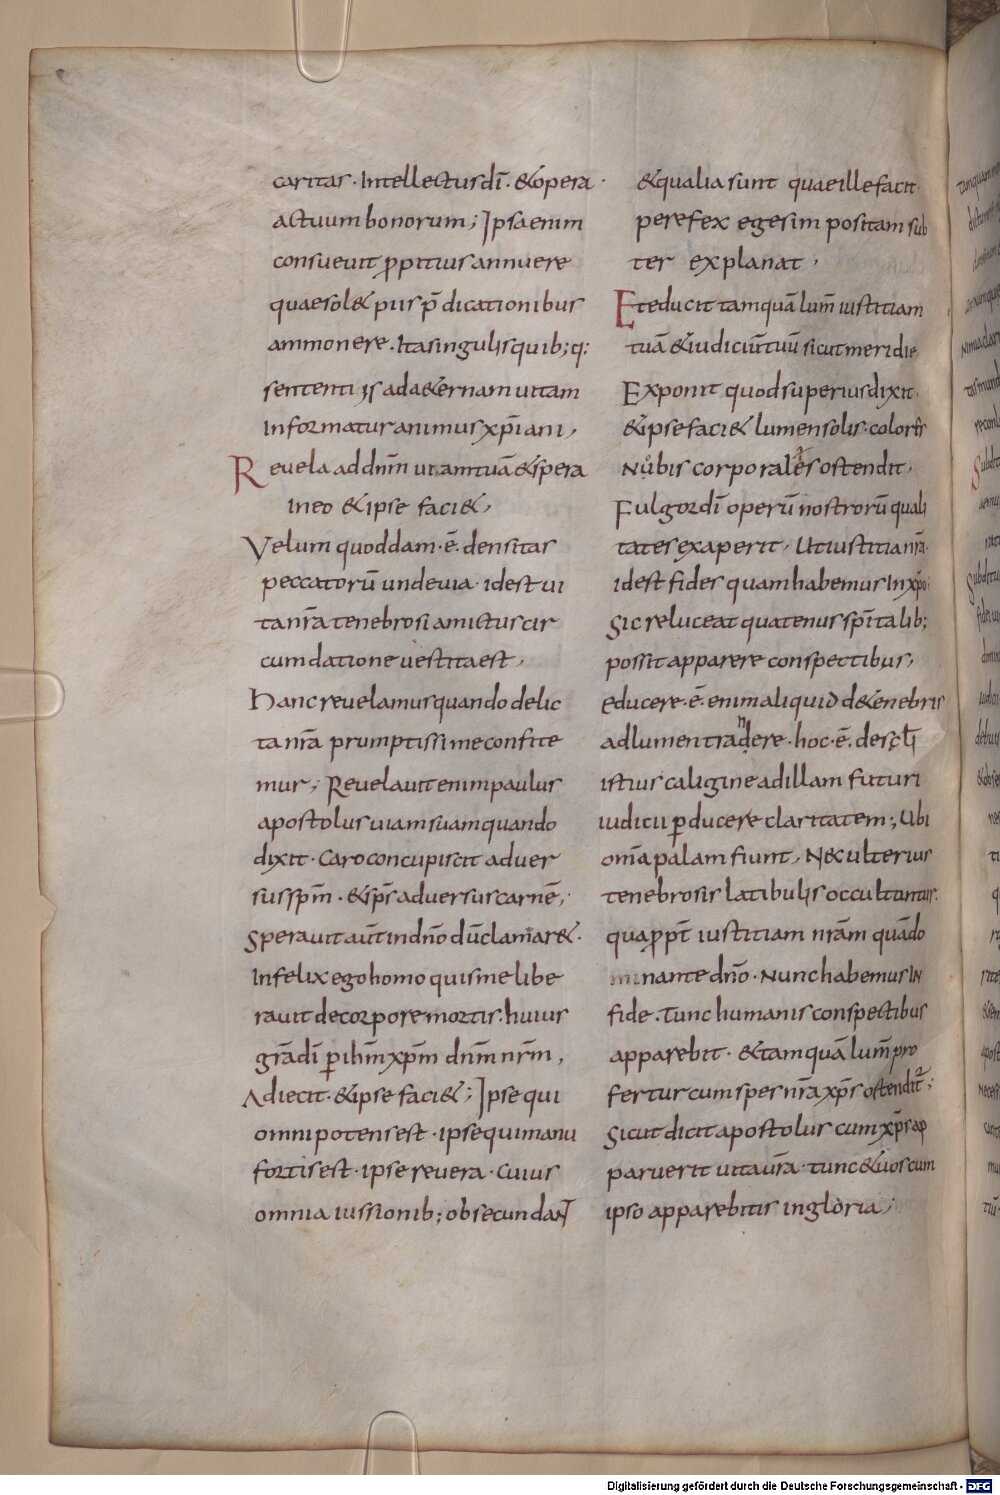 caritas · Intellectus dī · & opera ·
actuum bonorum ; Ipsa enim
consueuit ꝓpitius annuere
quae sol& piis p̄dicationibus
ammonere . Ita singulis quib; q;
sententiis ad a&ernam uitam
informatur animus xp̄iani ,
Reuela ad dnm̄ uiam tuā & spera
in eo & ipse faci& ,
Velum quoddam · ē · densitas
peccatorū undeuia · id est ui
ta nr̄a tenebrosi amictus cir
cumdatione uestita est ,
Hanc reuelamus quando delic
ta nr̄a prumptissime confite
mur ; Reuelauit enim paulus
apostolus uiam suam quando
dixit · Caro concupiscit aduer
sus spm̄ · & sps̄ aduersus carnē ,
Sperauit aut̄ in dn̄o dū clamar& ·
Infelix ego homo quis me libe
rauit de corpore mortis huius
gr̄a dī ꝑ ihm̄ xpm̄ dnm̄ nrm̄ ,
Adiecit · & ipse faci& ; Ipse qui
omnipotens est · ipse qui manu
fortis est · ipse reuera · Cuius
omnia iussionib; obsecundaNT
& qualia sunt quae ille facit
per efexegesim positam sub
ter explanat ,
Et educit tamquā lum̄ iustitiam
tuā & iudiciū tuū sicut meridiē
Exponit quod superius dixit
& ipse faci& lumen solis · color
Nubis corporales ostendit ,
Fulgor dī operū nostrorū quali
tates exaperit , Ut iustitia nr̄a
id est fides quam habemus in xp̄o
Sic reluceat quatenus spītalib;
possit apparere conspectibus ,
Educere · ē · enim aliquid de tenebris
ad lumen tradere · hoc · ē · de scl̄i
istius caligine ad illam futuri
iudicii ꝑducere claritatem ; Ubi
omīa palam fiunt , Nec ulterius
tenebrosis latibulis occultantur ·
quapp̄t iustitiam nrām quādo
nante dn̄o · Nunc habemus IN
fide · Tunc humanis conspectibus
apparebit · & tamquā lum̄ pro
fertur cum spes nr̄a xps̄ ostendit ;
Sicut dicit apostolus cum xps̄ ap
paruerit uita ur̄a · tunc & uos cum
ipso apparebitis in gloria ,
Digitalisierung gefördert durch die Deutsche Forschungsgemeinschaft - DFG